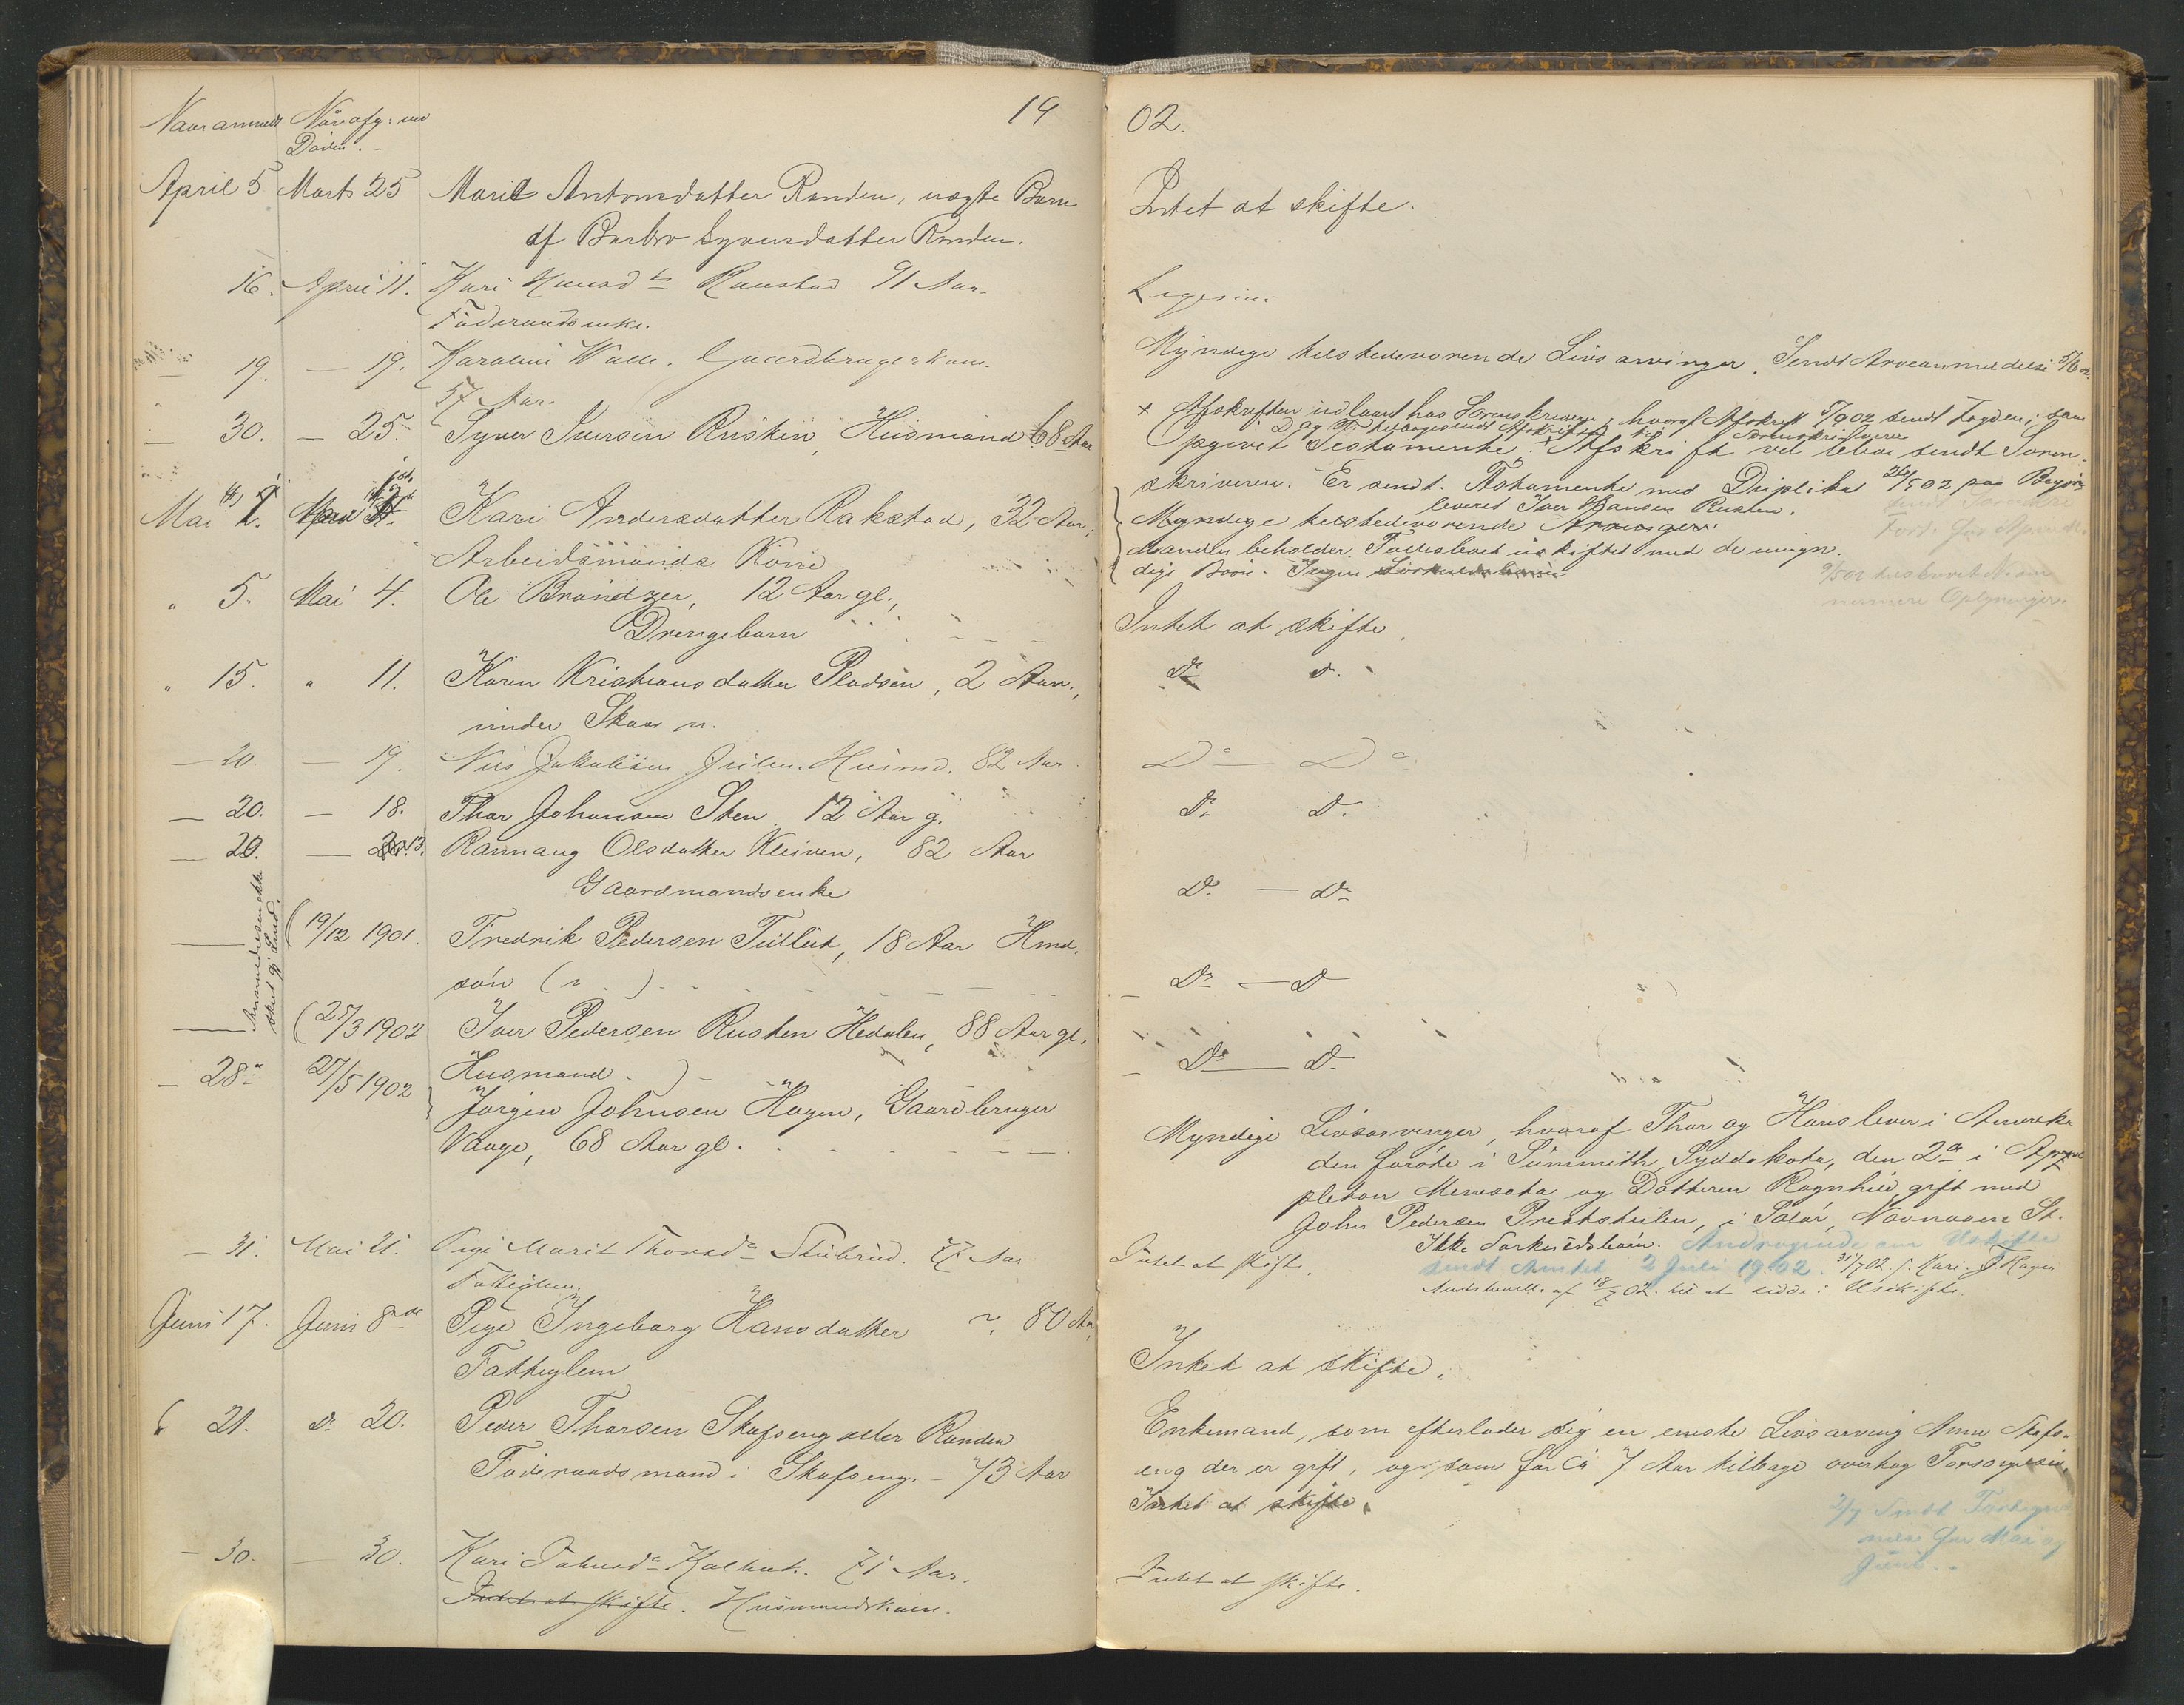 19
Naar anmeldt Naar afg. ved
Døden.
April 5 Marts 25 Marit Antonsdatter Randen, uægte Barn
af Barbro Syversdatter Randen.
16. April 11. Kari Knudsd. Raustad 91 Aar.
Føderaadsenke.
— 19. — 19. Karoline Walle. Gaardbrugerkone.
57 Aar.
— 30. — 25. Syver Iversen Rusten, Husmand 68 Aar
Mai 2. Kari Andersdatter Rakstad, 32 Aar,
Arbeidsmands Kone
" 5. Mai 4. Ole Brændzer, 12 Aar gl.,
Drengebarn
" 15. " 11. Karen Kristiansdatter Pladsen, 2 Aar,
under Skaar n.
— 20. — 19. Nils Jakobsen Husmd. 82 Aar
— 20. — 18. Thor Johansen Sten 12 Aar g.
— 20. — 13. Rannaug Olsdatter Kleiven, 82 Aar
Gaardmandsenke
— (19/12 1901. Fredrik Pedersen Tullut, 18 Aar Hmd.
søn
— (27/3 1902 Iver Pedersen Rusten Hedalen, 88 Aar gl.
Husmand.)
— 28. 27/5 1902 Jørgen Johnsen Hagen, Gaardbruger
Vaage, 68 Aar gl.
— 31. Mai 21. Pige Marit Thorsd. Stubrud. 77 Aar
Fattiglem.
Juni 17. Juni 8de Pige Ingeborg Hansdatter 80 Aar,
Fattiglem
" 21. Do 20. Peder Thorsen Skafseng eller Randen
Føderaadsmand i Skafseng. — 73 Aar
— 30. — 30. Kari 71 Aar.
Intet at skifte. Husmandskone.
02.
Intet at skifte.
Ligesaa.
Myndige tilstedeværende Livsarvinger. Sendt Arveanmeldelse 5/6 02.
x Afskriften udlaant hos Sorenskriveren, hvoraf Afskrift 5/9 02 sendt Fogden; som
Opgivet Testamente. x Afskrift vil blive sendt Soren-
skriveren. Er sendt. Testamente med Duplikat 26/5 02 paa Begjær
leveret Iver Hansen Rusten.
Myndige tilstedeværende Arvinger.
Manden beholder Fællesboet uskiftet med de umyn-
dige Børn. Ingen Særkuldsbørn
9/5 02 tilskrevet N. om
nærmere Oplysninger.
Intet at skifte.
Do D.
Do — Do
Do D.
Do — Do
Do — D
Do — D.
Myndige Livsarvinger, hvoraf Thor og Hans lever i Amerika
den første i Summith, Syddakota, den 2den i Ap-
pleton Menesota og Datteren Ragnhild gift med
John Pedersen i Solør, St.
Ikke Særkuldsbørn. Andragende om Uskifte
sendt Amtet 2 Juli 1902. 31/7 02. f. Kari J. Hagen
af 18/7 02. til at sidde i Uskifte.
Intet at skifte.
Intet at skifte.
Enkemand, som efterlader sig en eneste Livsarving Anne Skafs-
eng der er gift, og som for Ca 7 Aar tilbage overtog Forsørgelsen.
Intet at skifte.
2/7 Sendt Fortegnel-
nelse for Mai og
Juni.
Intet at skifte.